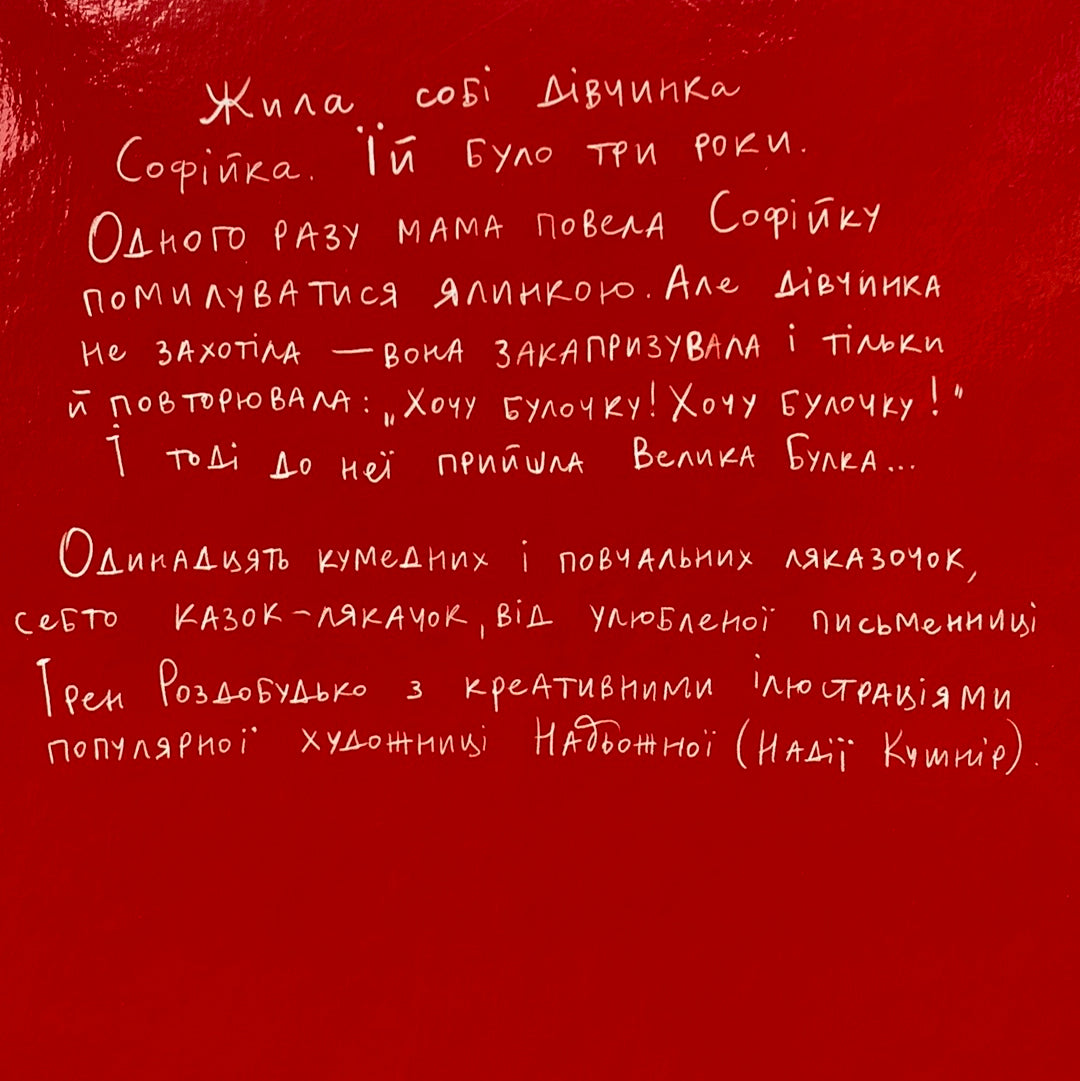 Жила собі дівчинка
Софійка. Їй було три роки.
Одного разу мама повела Софійку
помилуватися ялинкою. Але дівчинка
не захотіла — вона закапризувала і тільки
й повторювала: „Хочу булочку! Хочу булочку!"
І тоді до неї прийшла Велика Булка...
Одинадцять кумедних і повчальних ляказочок,
себто казок-лякачок, від улюбленої письменниці
Ірен Роздобудько з креативними ілюстраціями
популярної художниці Надьожної (Надії Кушнір).